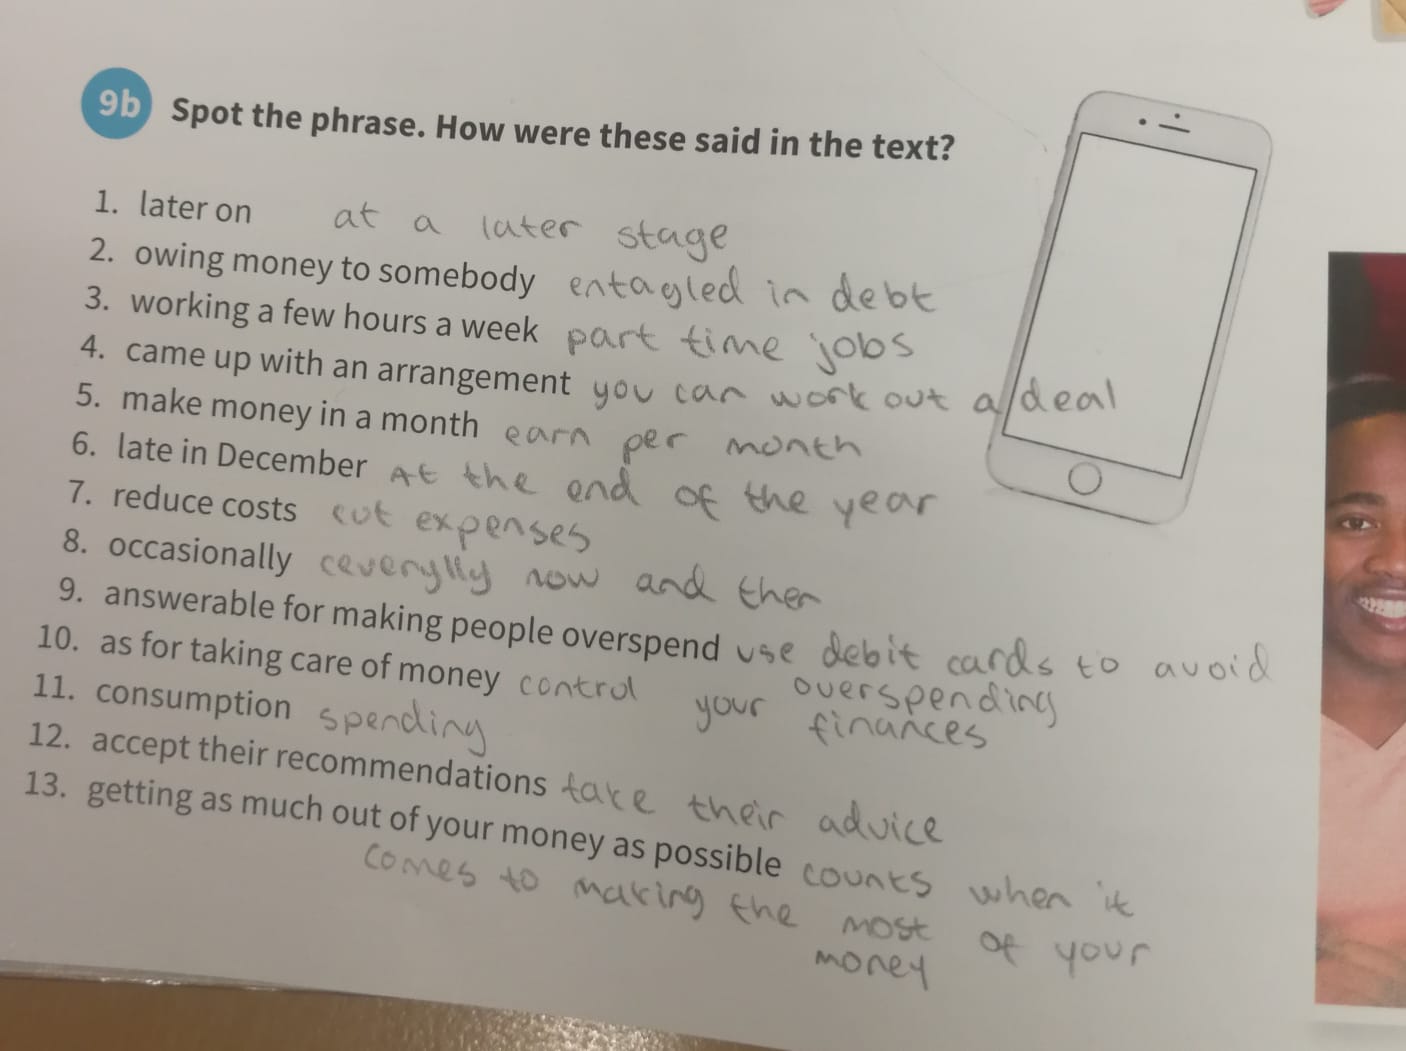 9b Spot the phrase. How were these said in the text?
1. later on at a later stage
2. owing money to somebody entagled in debt
3. working a few hours a week part time jobs
4. came up with an arrangement you can work out a deal
5. make money in a month earn per month
6. late in December At the end of the year
7. reduce costs cut expenses
8. occasionally now and then
9. answerable for making people overspend use debit cards to avoid
overspending
10. as for taking care of money control your finances
11. consumption spending
12. accept their recommendations take their advice
13. getting as much out of your money as possible counts when it
comes to making the most of your
money